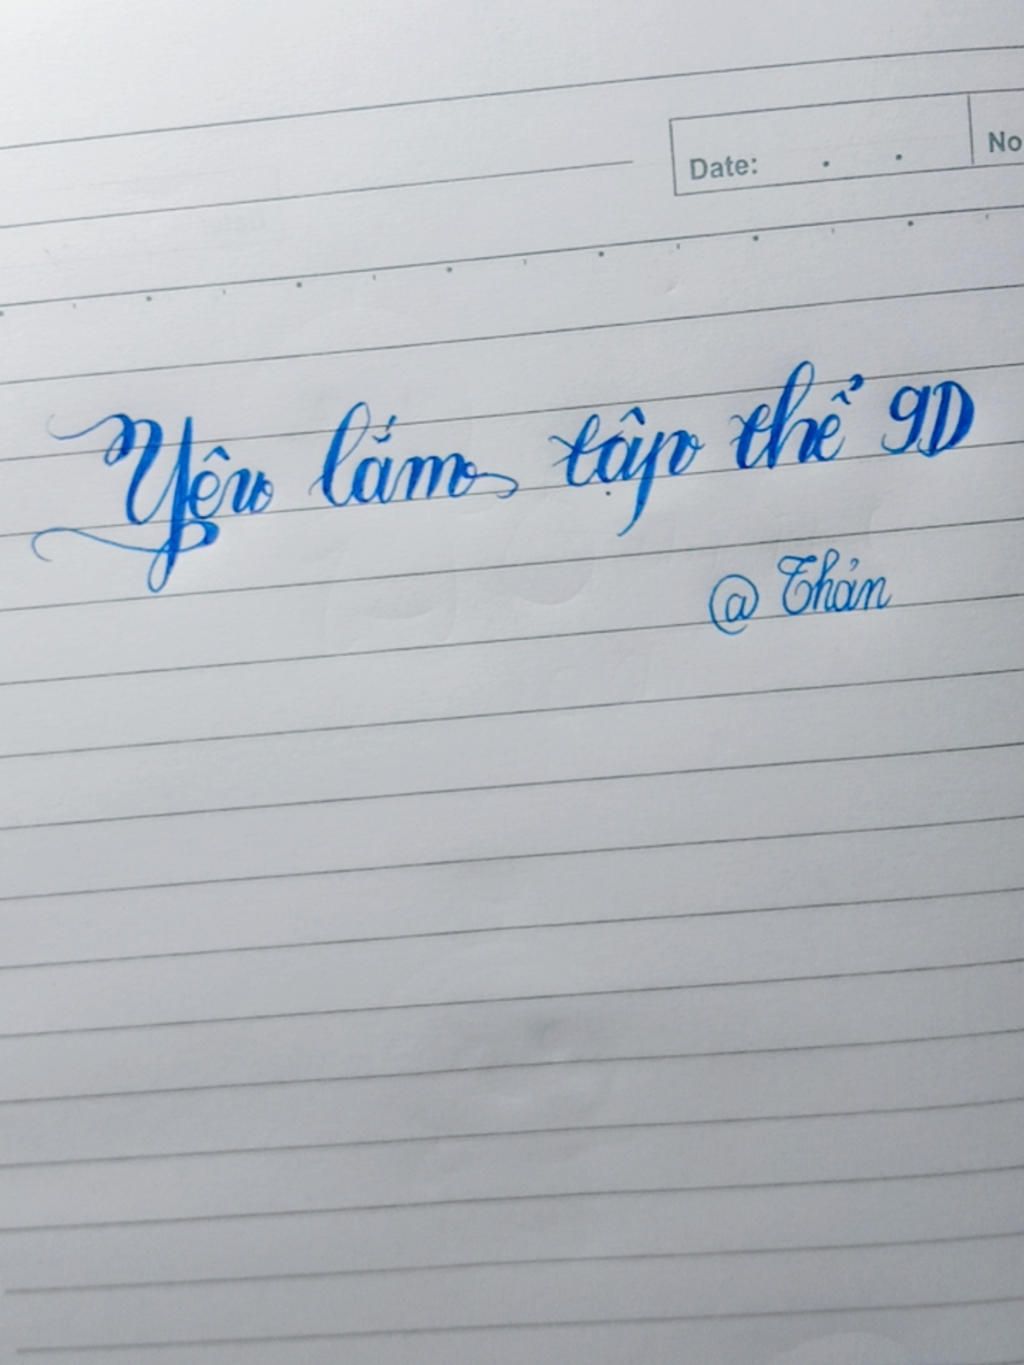 Date: . . No
Yêu lắm tập thể 9D
@ Thản